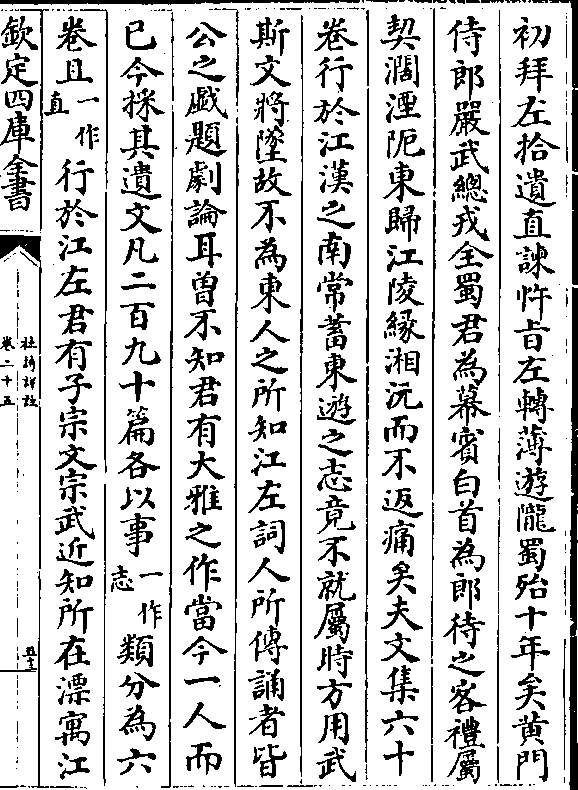 初拜左拾遺直諫忤旨左轉薄遊隴蜀殆十年矣黄門
侍郎嚴武總戎全蜀君為幕賓白首為郎待之客禮屬
契濶湮阨東歸江陵緣湘沅而不返痛矣夫文集六十
卷行於江漢之南常蓄東遊之志竟不就屬時方用武
斯文將墜故不為東人之所知江左詞人所傳誦者皆
公之戲題劇論耳曾不知君有大雅之作當今一人而
已今採其遺文凡二百九十篇各以事一作志類分為六
卷且一作直行於江左君有子宗文宗武近知所在漂寓江
欽定四庫全書
杜詩詳註
卷二十五